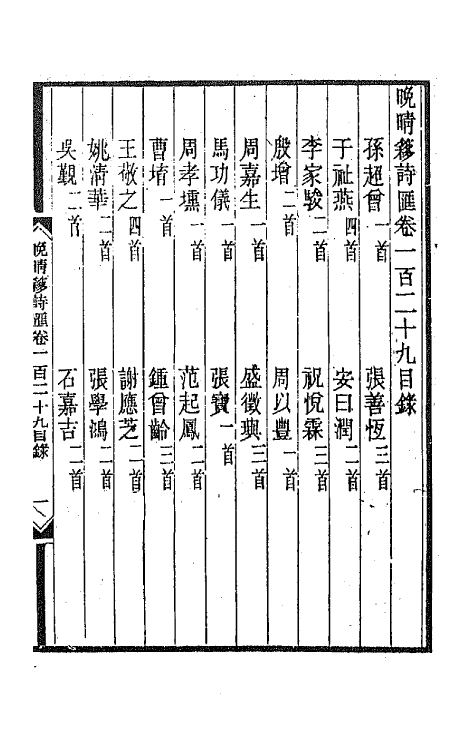 晚晴簃詩匯卷一百二十九目錄
孫超曾一首　張善恆三首
于祉燕四首　安曰潤二首
李家駿二首　祝悅霖三首
殷增二首　周以豐一首
周嘉生一首　盛徵璵三首
馬功儀一首　張寶一首
周孝壎一首　范起鳳二首
曹堉一首　鍾曾齡三首
王敬之四首　謝應芝二首
姚清華二首　張學鴻二首
吳覲二首　石嘉吉二首
晚晴簃詩匯卷一百二十九目錄　一